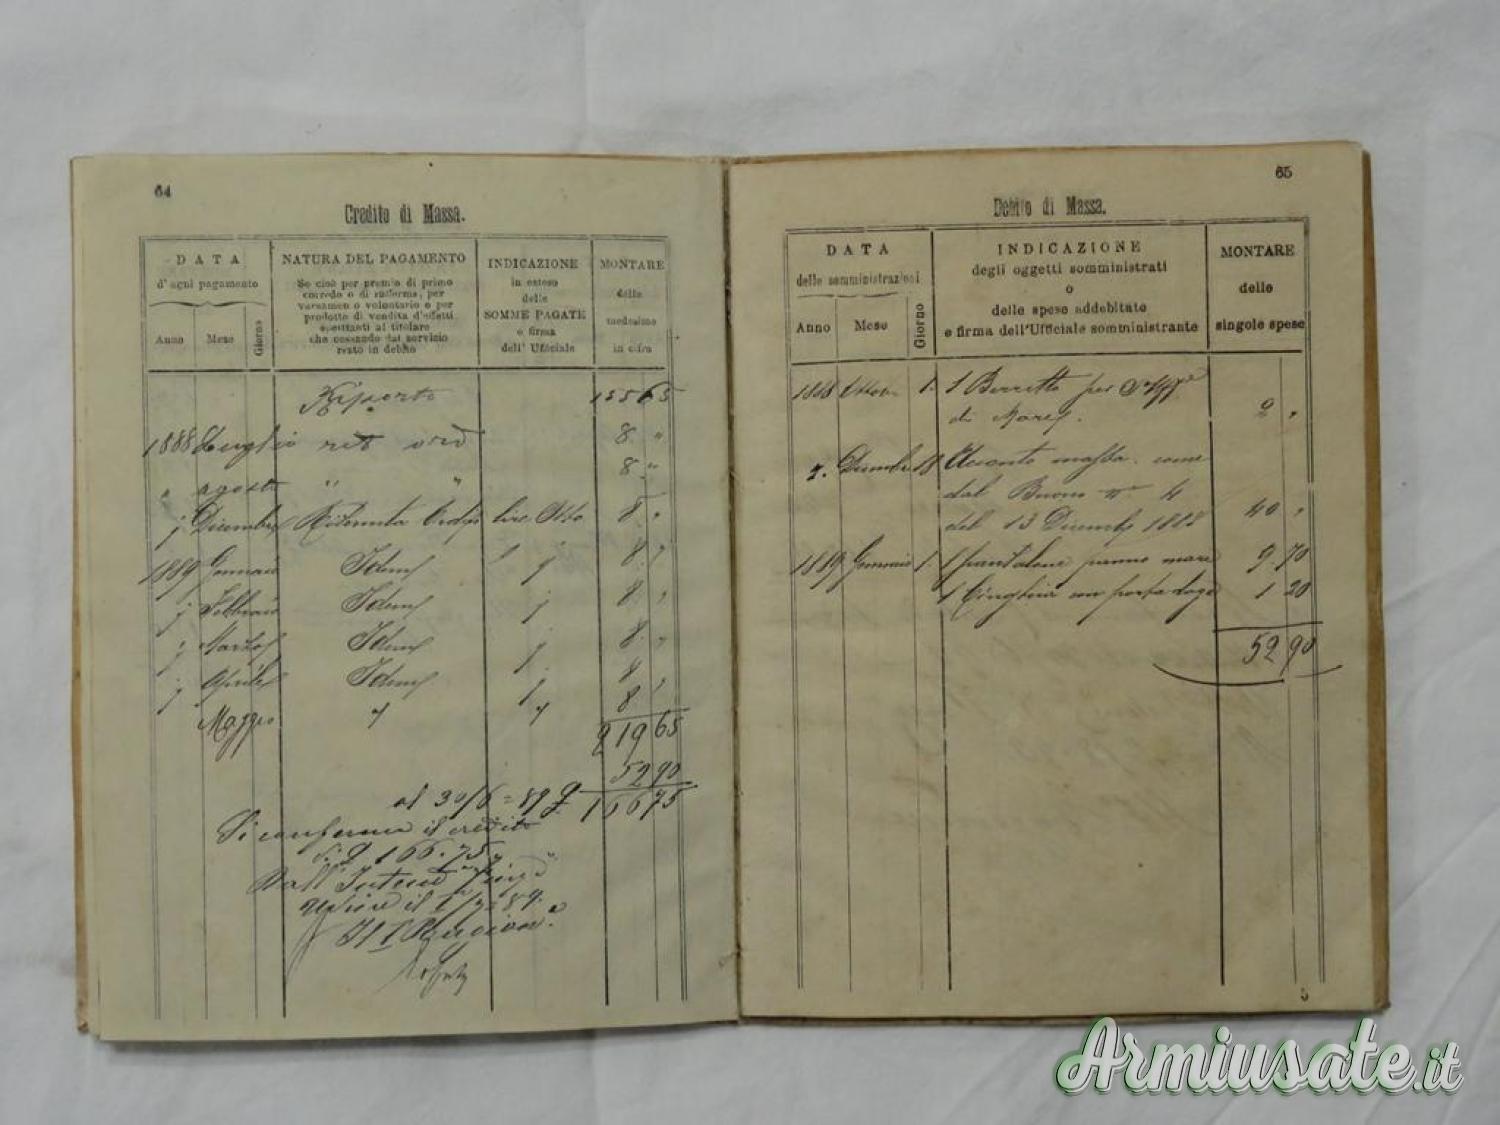 64
Credito di Massa.
DATA
d'ogni pagamento
Anno Mese Giorno
NATURA DEL PAGAMENTO
Se cioè per premio di primo
corredo o di rafferma, per
versamento volontario o per
prodotto di vendita d'effetti
spettanti al titolare
che cessando dal servizio
resto in debito
INDICAZIONE
in esteso
delle
SOMME PAGATE
e firma
dell' Ufficiale
MONTARE
delle
medesime
in cifra
Riporto 155 65
1888 Luglio rit ord 8 "
" agosto " " 8 "
Dicembre Ritenuta lire Otto 8 "
1889 Gennaio Idem 8 "
Febbraio Idem 8 "
Marzo Idem 8 "
Aprile Idem 8 "
Maggio " " 8
219 65
52 90
al 30/6=89 166 75
Si conferma il credito
di £ 166.75
Dall'
il 1/7 89.
Il
65
Debito di Massa.
DATA
delle somministrazioni
Anno Mese Giorno
INDICAZIONE
degli oggetti somministrati
o
delle spese addebitate
e firma dell'Ufficiale somministrante
MONTARE
delle
singole spese
1888 Ottobre 1. 1 Berretto per
di 2 "
Dicembre 18 Acconto massa come
dal Buono N° 4
del 13 Dicembre 1888 40 "
1889 Gennaio 1. 1 pantalone panno 9 70
1 Cinghia con porta 1 20
52 90
5
Armiusate.it